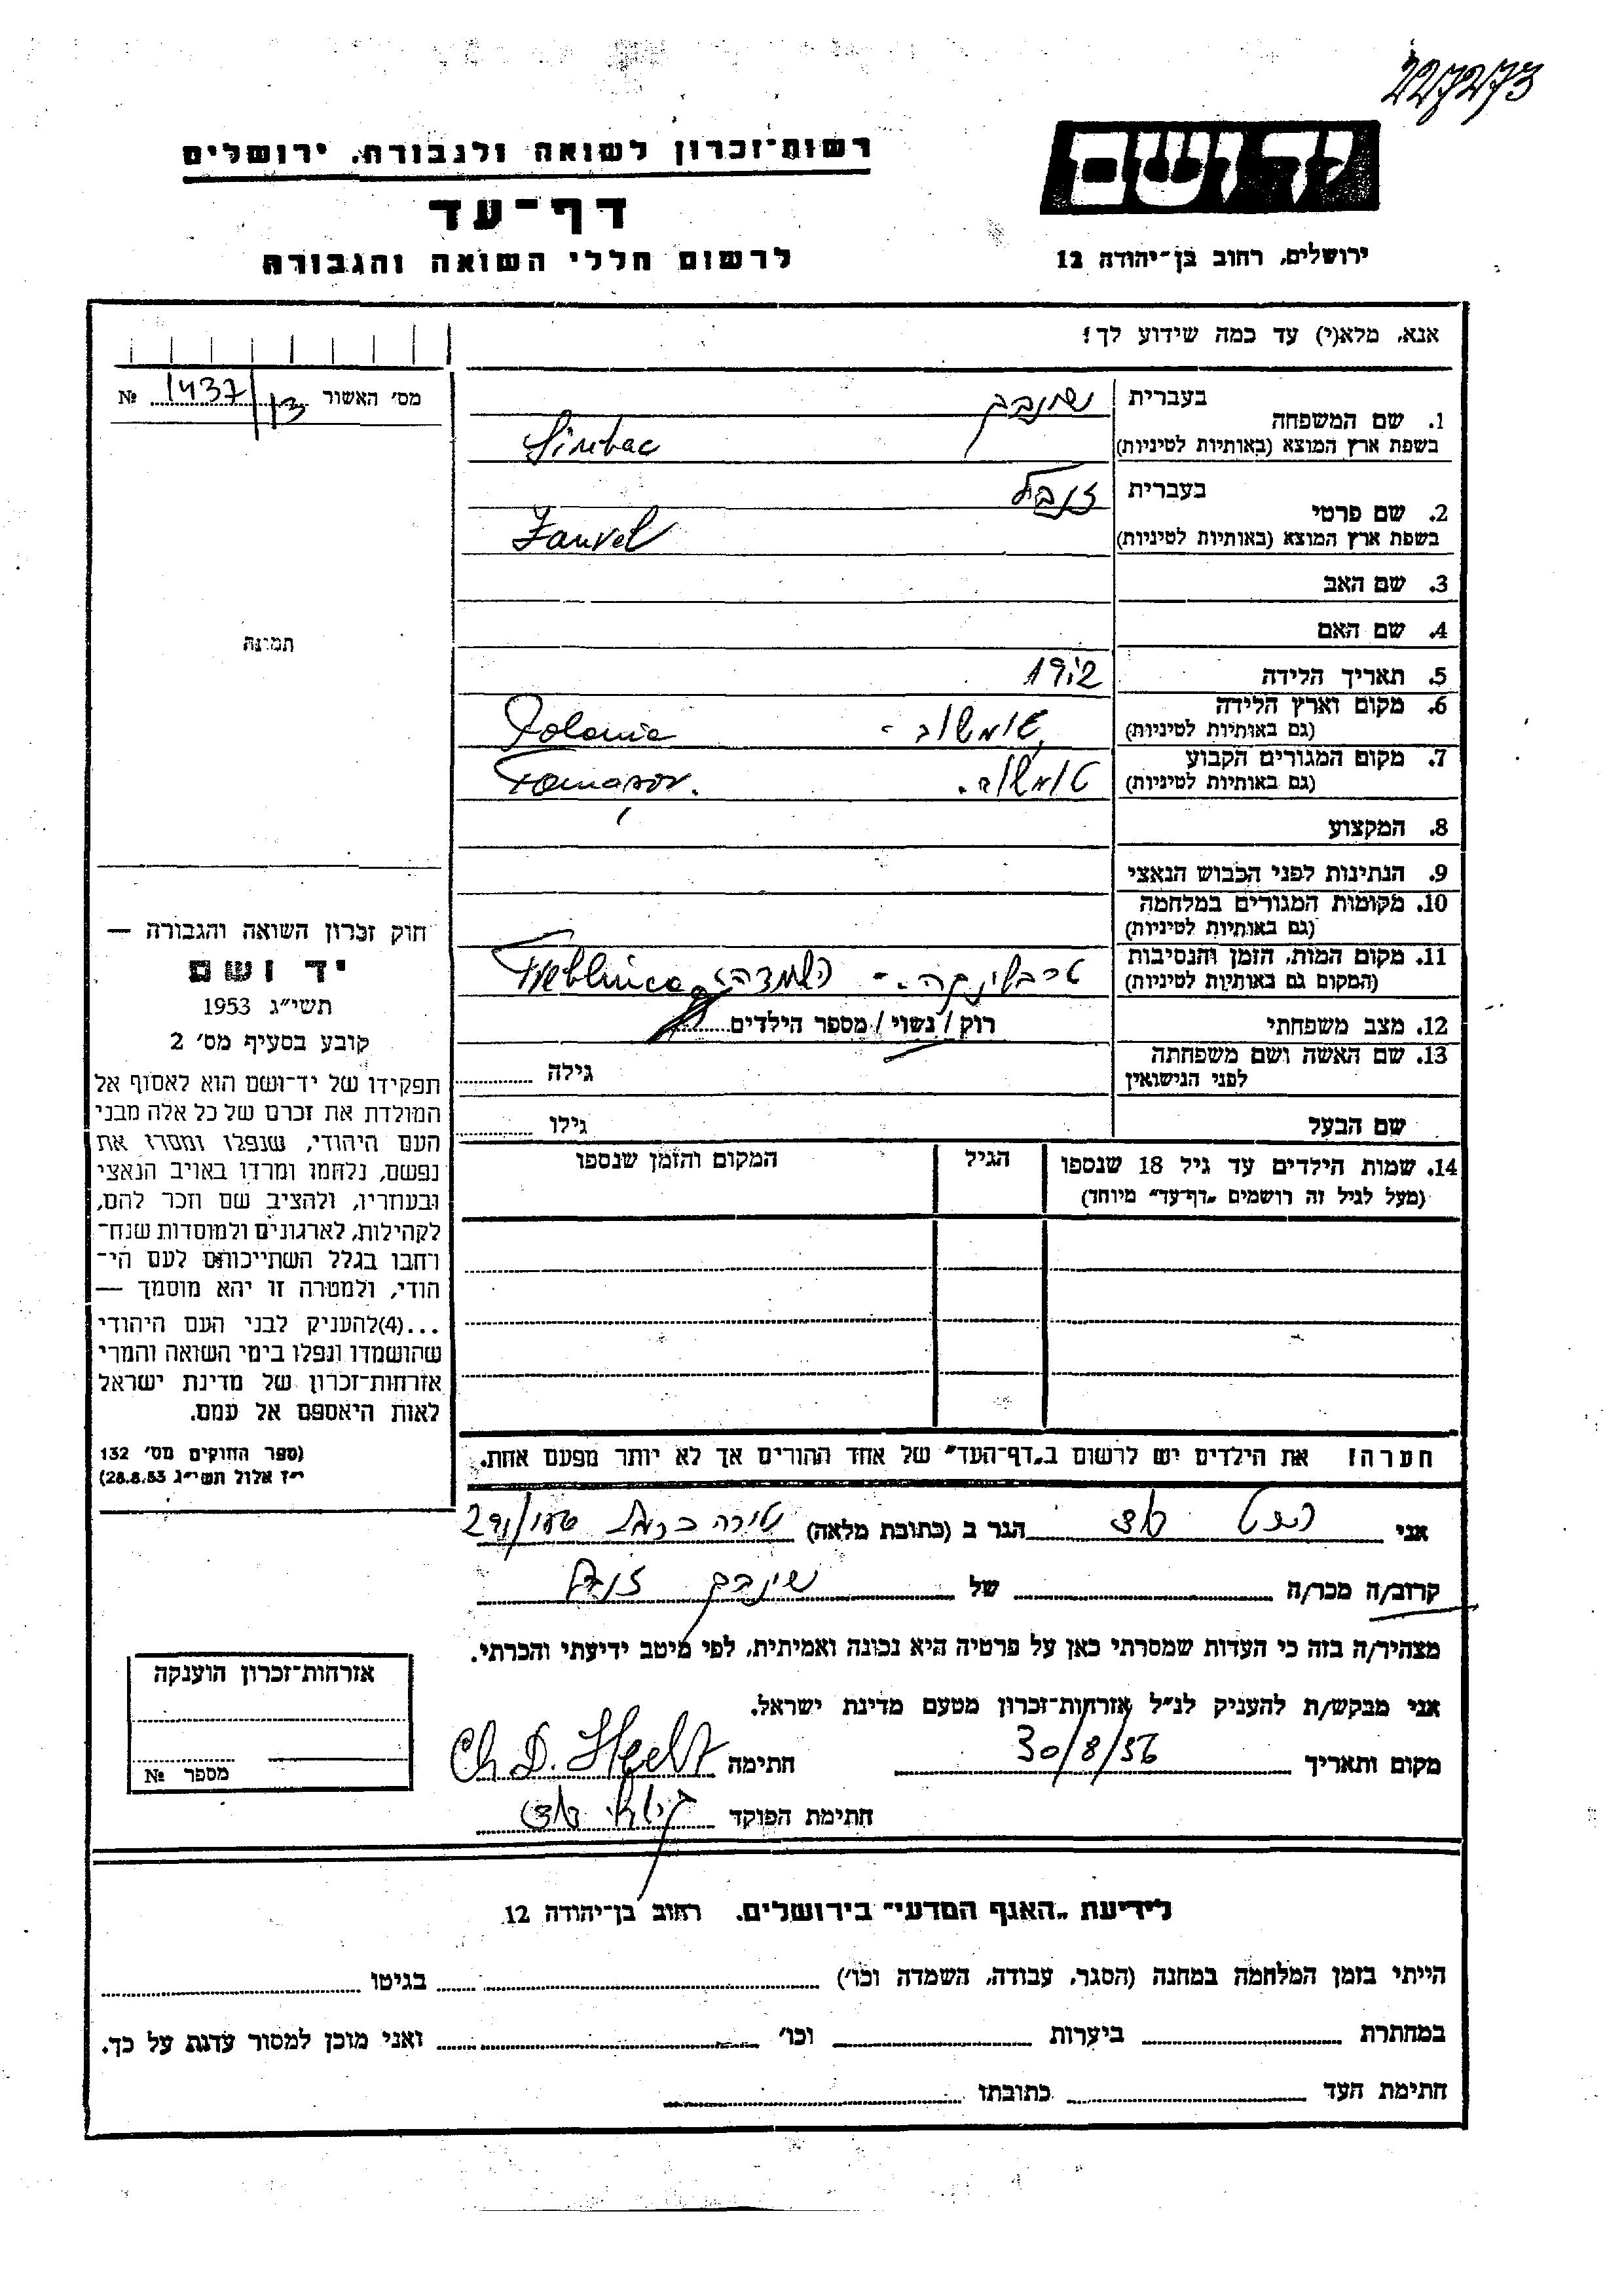 227273
רשות־זכרון לשואה ולגבורה, ירושלים
יד ושם
דף־עד
לרשום חללי השואה והגבורה
ירושלים, רחוב בן־יהודה 12
אנא, מלא(י) עד כמה שידוע לך!
מס׳ האשור 1437 №
1. שם המשפחה
בעברית
בשפת ארץ המוצא (באותיות לטיניות)
2. שם פרטי
בעברית
בשפת ארץ המוצא (באותיות לטיניות) Zanvel
3. שם האב
4. שם האם
5. תאריך הלידה
6. מקום וארץ הלידה
(גם באותיות לטיניות) טומשוב - Polania
7. מקום המגורים הקבוע
(גם באותיות לטיניות) טומשוב. Tomasov.
8. המקצוע
9. הנתינות לפני הכבוש הנאצי
10. מקומות המגורים במלחמה
(גם באותיות לטיניות)
11. מקום המות, הזמן והנסיבות
(המקום גם באותיות לטיניות) טרבלינקה - השמדה. Treblinca
12. מצב משפחתי רוק / נשוי / מספר הילדים
13. שם האשה ושם משפחתה
לפני הנישואין גילה
שם הבעל גילו
14. שמות הילדים עד גיל 18 שנספו
(מעל לגיל זה רושמים „דף־עד״ מיוחד)
הגיל
המקום והזמן שנספו
הערה! את הילדים יש לרשום ב„דף־העד״ של אחד ההורים אך לא יותר מפעם אחת.
תמונה
חוק זכרון השואה והגבורה —
יד ושם
תשי״ג 1953
קובע בסעיף מס׳ 2
תפקידו של יד־ושם הוא לאסוף אל
המולדת את זכרם של כל אלה מבני
העם היהודי, שנפלו ומסרו את
נפשם, נלחמו ומרדו באויב הנאצי
ובעוזריו, ולהציב שם וזכר להם,
לקהילות, לארגונים ולמוסדות שנח־
רחבו בגלל השתייכותם לעם הי־
הודי, ולמטרה זו יהא מוסמך —
...(4)להעניק לבני העם היהודי
שהושמדו ונפלו בימי השואה והמרי
אזרחות־זכרון של מדינת ישראל
לאות היאספם אל עמם.
(ספר החוקים מס׳ 132
י״ז אלול תשי״ג 28.8.53)
אני הגר ב (כתובת מלאה) טירה כרמל
קרוב/ה מכר/ה של
מצהיר/ה בזה כי העדות שמסרתי כאן על פרטיה היא נכונה ואמיתית, לפי מיטב ידיעתי והכרתי.
אני מבקש/ת להעניק לנ״ל אזרחות־זכרון מטעם מדינת ישראל.
מקום ותאריך 30/8/56 חתימה Ch D. Hecht
חתימת הפוקד
אזרחות־זכרון הוענקה
מספר №
לידיעת „האגף המדעי״ בירושלים, רחוב בן־יהודה 12
הייתי בזמן המלחמה במחנה (הסגר, עבודה, השמדה וכו׳) בגיטו
במחתרת ביערות וכו׳ ואני מוכן למסור עדות על כך.
חתימת העד כתובתו